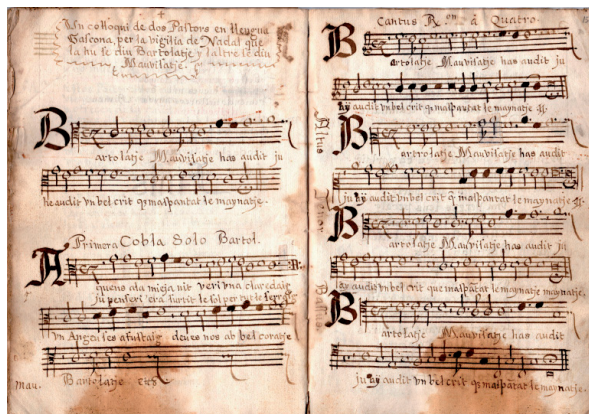 Un colloqui de dos Pastors en llengua
Gascona, per la vigilia de Nadal que
la hu se diu Bartolatje y laltre se diu
Mauvisatje.
Bartolatje Mauvisatje has audit ju
he audit vn bel crit q̃ maspantat le maynatje.
Primera Cobla Solo Bartol.
Aqueno ala mieja nit veri vna claredat
ju penseri era surtit le sol per tut
vn Angeu ses deues nos ab bel coratje
mau. Bartolatje etc̃
Cantus Rᵒⁿ â Quatro.
Bartolatje Mauvisatje has audit ju
hay audit vn bel crit q̃ maspantat le maynatje
Altus
Bartrolatje Mauvisatje has audit
ju hay audit vn bel crit q̃ maspantat le maynatje
Tenor
Bartolatje Mauvisatje has audit ju
hay audit vn bel crit que maspãtat le maynatje maynatje,
Bassus
Bartolatje Mauvisatje has audit
ju hay audit vn bel crit q̃ maspãtat le maynatje.